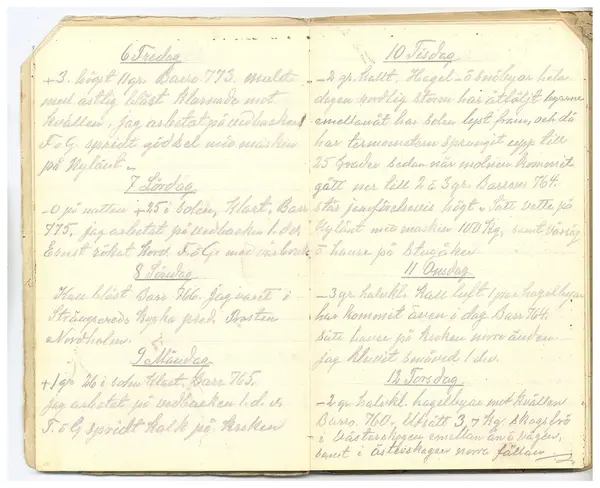 6 Fredag
+3. högst 11 gr Baro 773. mulet
med ostlig blåst Klarnade mot
kvällen, jag arbetat på vedbacken
T o G. spridt gödsel med maskin
på Nylänt.
7 Lördag
-0 på natten +25 i solen, Klart, Baro
775, jag arbetat på vedbacken l.d.v.
Ernst sökat Nord. T o G med
8 Söndag
Kall blåst Baro 766. jag varit i
Strängsereds Kyrka pred. Prosten
Nordholm.
9 Måndag
+1 gr 26 i solen Klart, Baro 765.
jag arbetat på vedbacken l.d.v.
T. o G spridt kalk på kroken
10 Tisdag
-2 gr. kallt. Hagel- o snöbyar hela
dagen nordlig storm har åtföljt byarne
emellanåt har solen lyst fram, och då
har termometern sprungit upp till
25 grader sedan när molnen kommit
gått ner till 2 à 3 gr. Barom 764.
står jemförelsevis högt. Sått vette på
Nylänt med maskin 100 Kg, samt
o hause på stugåker
11 Onsdag
-3 gr. halvkl. Kall luft 1 par hagelbyar
har kommit även i dag Baro 764.
Sått hause på kroken norra änden
jag kluvit småved l.d.v.
12 Torsdag
-2 gr. halvkl. hagelbyar mot kvällen
Baro. 760. Utsått 3,7 Kg. skogsfrö
i Västerskogen emellan ån o vägen,
samt i österskogen norra fällan